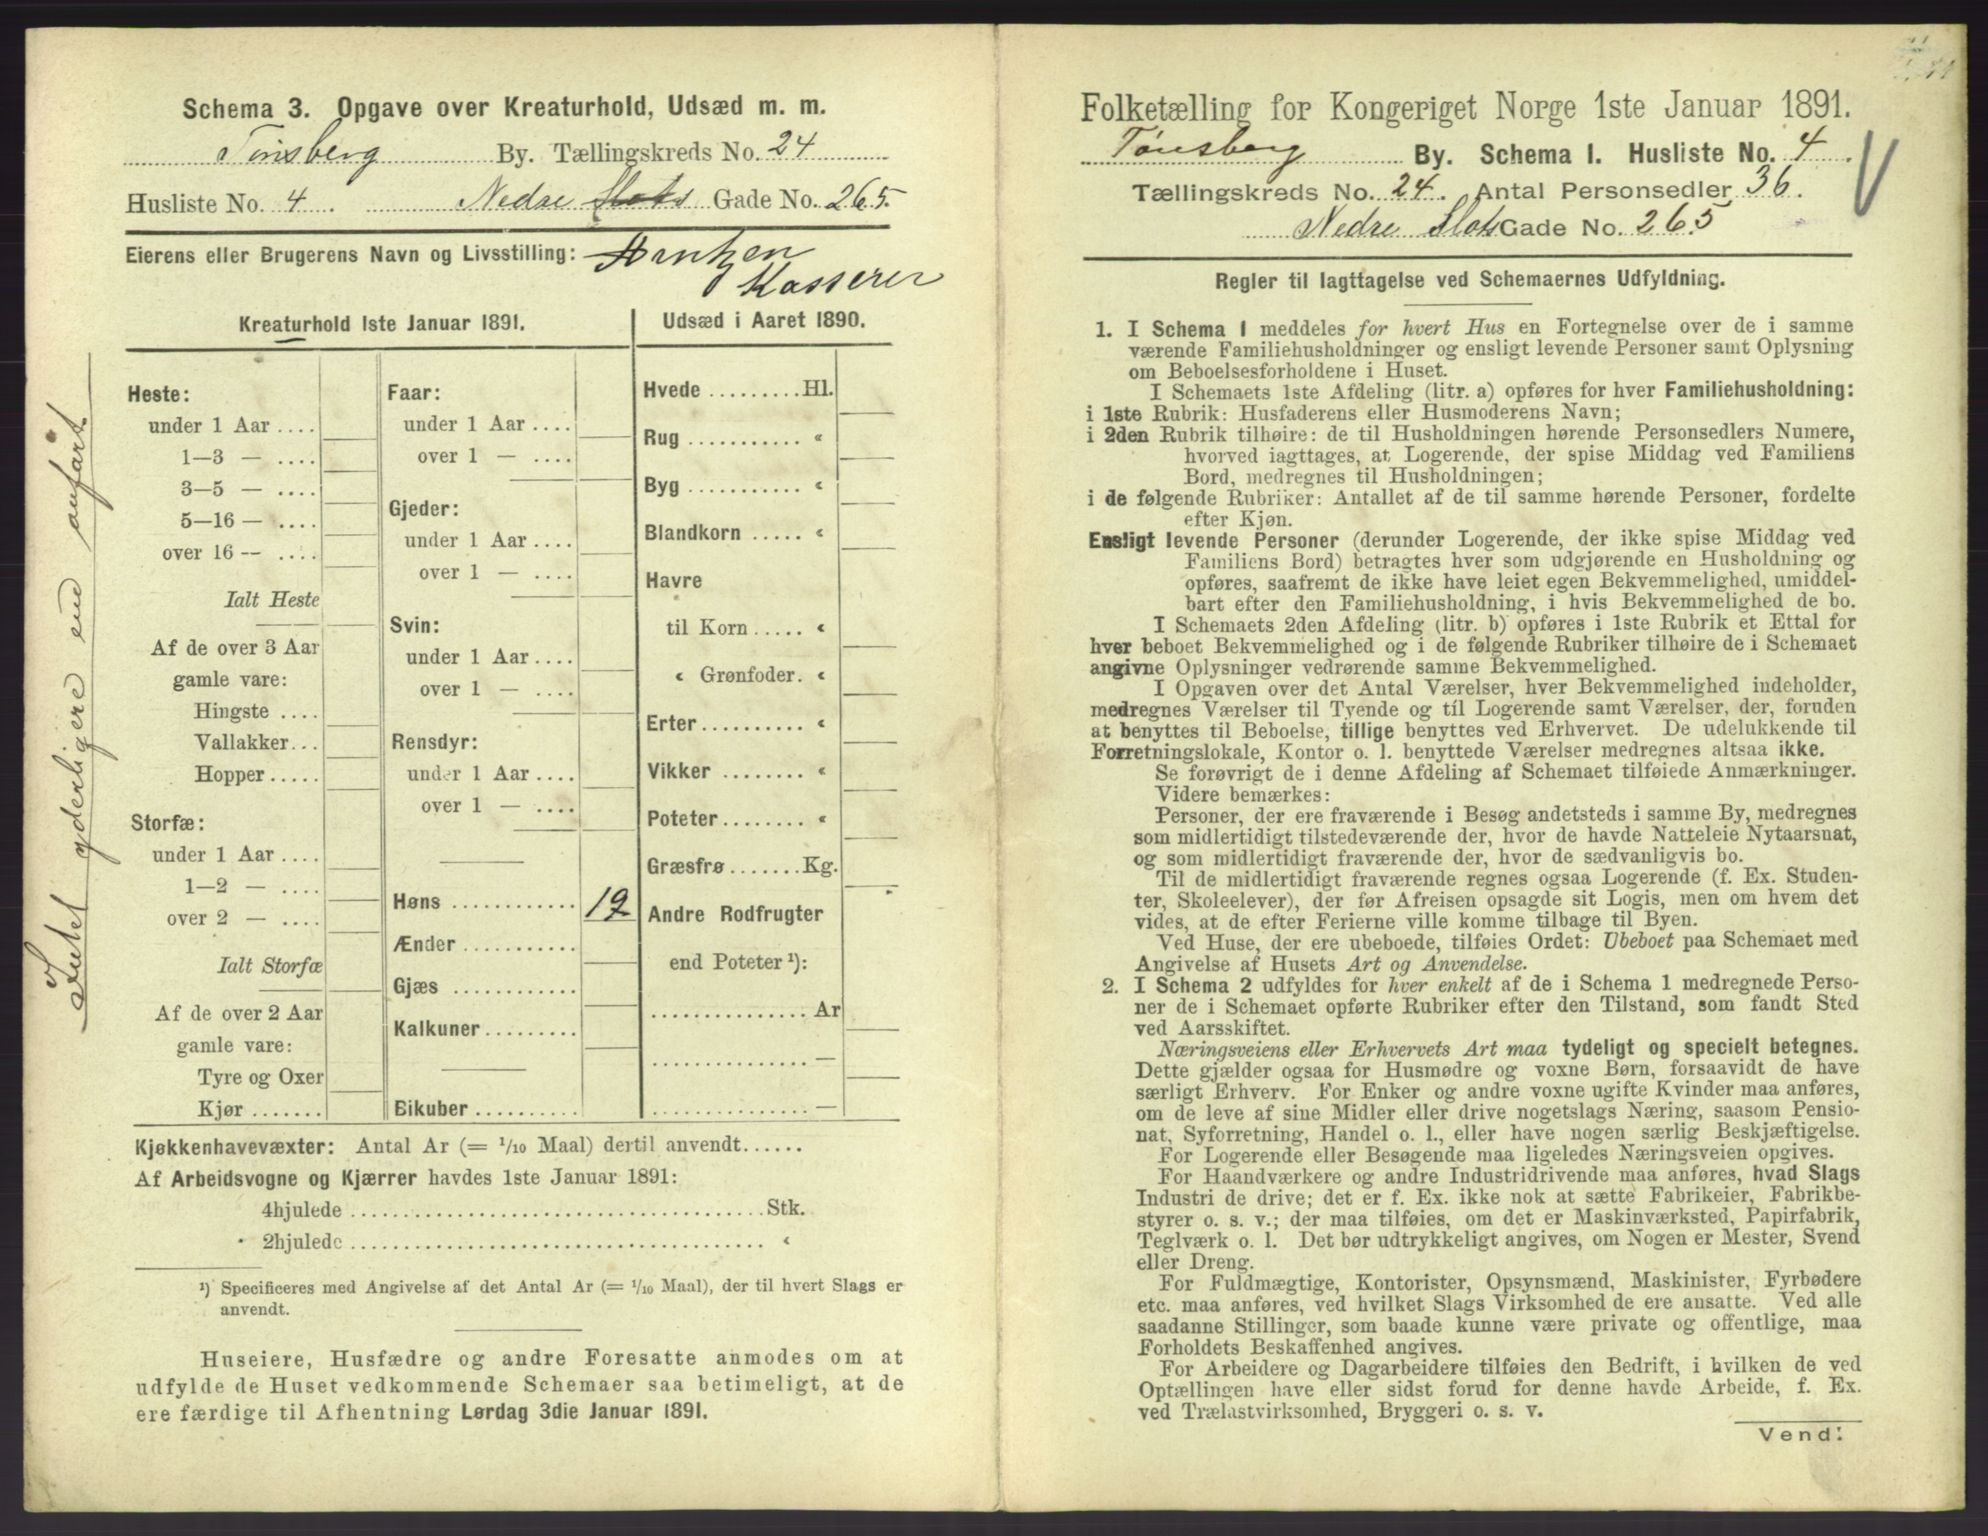 Schema 3. Opgave over Kreaturhold, Udsæd m. m.
Tönsberg By. Tællingskreds No. 24
Husliste No. 4. Nedre Slots Gade No. 265.
Eierens eller Brugerens Navn og Livsstilling: Arntzen
Kasserer
Kreaturhold 1ste Januar 1891.
Heste:
under 1 Aar ....
1—3 — ....
3—5 — ....
5—16 — ....
over 16 — ....
Ialt Heste
Af de over 3 Aar
gamle vare:
Hingste ....
Vallakker...
Hopper.....
Storfæ:
under 1 Aar ....
1—2 — ....
over 2 — ....
Ialt Storfæ
Af de over 2 Aar
gamle vare:
Tyre og Oxer
Kjør .......
Faar:
under 1 Aar ....
over 1 — ....
Gjeder:
under 1 Aar ....
over 1 — ....
Svin:
under 1 Aar ....
over 1 — ....
Rensdyr:
under 1 Aar ....
over 1 — ....
Høns ............ 12
Ænder ...........
Gjæs ............
Kalkuner.........
Bikuber ..........
Udsæd i Aaret 1890.
Hvede .........Hl.
Rug ........... «
Byg ........... «
Blandkorn ..... «
Havre
til Korn ..... «
« Grønfoder. «
Erter.......... «
Vikker ........ «
Poteter........ «
Græsfrø .......Kg.
Andre Rodfrugter
end Poteter ¹):
............... Ar
............... —
............... —
Kjøkkenhavevæxter: Antal Ar (= 1/10 Maal) dertil anvendt......
Af Arbeidsvogne og Kjærrer havdes 1ste Januar 1891:
4hjulede ........................................Stk.
2hjulede ........................................ «
¹) Specificeres med Angivelse af det Antal Ar (= 1/10 Maal), der til hvert Slags er
anvendt.
Huseiere, Husfædre og andre Foresatte anmodes om at
udfylde de Huset vedkommende Schemaer saa betimeligt, at de
ere færdige til Afhentning Lørdag 3die Januar 1891.
Intet yderligere end anført
Folketælling for Kongeriget Norge 1ste Januar 1891.
Tönsberg By. Schema I. Husliste No. 4.
Tællingskreds No. 24. Antal Personsedler 36.
Nedre Slots Gade No. 265
Regler til Iagttagelse ved Schemaernes Udfyldning.
1. I Schema 1 meddeles for hvert Hus en Fortegnelse over de i samme
værende Familiehusholdninger og ensligt levende Personer samt Oplysning
om Beboelsesforholdene i Huset.
I Schemaets 1ste Afdeling (litr. a) opføres for hver Familiehusholdning:
i 1ste Rubrik: Husfaderens eller Husmoderens Navn;
i 2den Rubrik tilhøire: de til Husholdningen hørende Personsedlers Numere,
hvorved iagttages, at Logerende, der spise Middag ved Familiens
Bord, medregnes til Husholdningen;
i de følgende Rubriker: Antallet af de til samme hørende Personer, fordelte
efter Kjøn.
Ensligt levende Personer (derunder Logerende, der ikke spise Middag ved
Familiens Bord) betragtes hver som udgjørende en Husholdning og
opføres, saafremt de ikke have leiet egen Bekvemmelighed, umiddel-
bart efter den Familiehusholdning, i hvis Bekvemmelighed de bo.
I Schemaets 2den Afdeling (litr. b) opføres i 1ste Rubrik et Ettal for
hver beboet Bekvemmelighed og i de følgende Rubriker tilhøire de i Schemaet
angivne Oplysninger vedrørende samme Bekvemmelighed.
I Opgaven over det Antal Værelser, hver Bekvemmelighed indeholder,
medregnes Værelser til Tyende og til Logerende samt Værelser, der, foruden
at benyttes til Beboelse, tillige benyttes ved Erhvervet. De udelukkende til
Forretningslokale, Kontor o. l. benyttede Værelser medregnes altsaa ikke.
Se forøvrigt de i denne Afdeling af Schemaet tilføiede Anmærkninger.
Videre bemærkes:
Personer, der ere fraværende i Besøg andetsteds i samme By, medregnes
som midlertidigt tilstedeværende der, hvor de havde Natteleie Nytaarsnat,
og som midlertidigt fraværende der, hvor de sædvanligvis bo.
Til de midlertidigt fraværende regnes ogsaa Logerende (f. Ex. Studen-
ter, Skoleelever), der før Afreisen opsagde sit Logis, men om hvem det
vides, at de efter Ferierne ville komme tilbage til Byen.
Ved Huse, der ere ubeboede, tilføies Ordet: Ubeboet paa Schemaet med
Angivelse af Husets Art og Anvendelse.
2. I Schema 2 udfyldes for hver enkelt af de i Schema 1 medregnede Perso-
ner de i Schemaet opførte Rubriker efter den Tilstand, som fandt Sted
ved Aarsskiftet.
Næringsveiens eller Erhvervets Art maa tydeligt og specielt betegnes.
Dette gjælder ogsaa for Husmødre og voxne Børn, forsaavidt de have
særligt Erhverv. For Enker og andre voxne ugifte Kvinder maa anføres,
om de leve af sine Midler eller drive nogetslags Næring, saasom Pensio-
nat, Syforretning, Handel o. l., eller have nogen særlig Beskjæftigelse.
For Logerende eller Besøgende maa ligeledes Næringsveien opgives.
For Haandværkere og andre Industridrivende maa anføres, hvad Slags
Industri de drive; det er f. Ex. ikke nok at sætte Fabrikeier, Fabrikbe-
styrer o. s. v.; der maa tilføies, om det er Maskinværksted, Papirfabrik,
Teglværk o. l. Det bør udtrykkeligt angives, om Nogen er Mester, Svend
eller Dreng.
For Fuldmægtige, Kontorister, Opsynsmænd, Maskinister, Fyrbødere
etc. maa anføres, ved hvilket Slags Virksomhed de ere ansatte. Ved alle
saadanne Stillinger, som baade kunne være private og offentlige, maa
Forholdets Beskaffenhed angives.
For Arbeidere og Dagarbeidere tilføies den Bedrift, i hvilken de ved
Optællingen have eller sidst forud for denne havde Arbeide, f. Ex.
ved Trælastvirksomhed, Bryggeri o. s. v.
Vend!